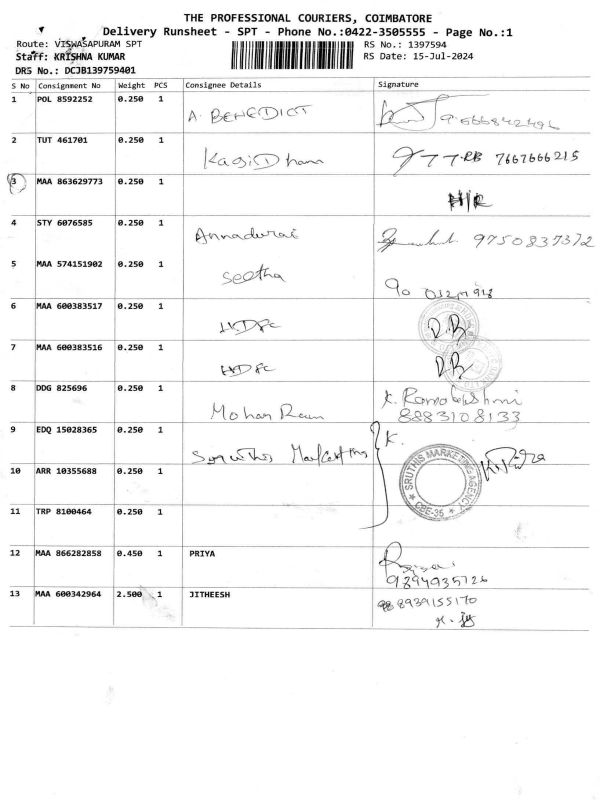 THE PROFESSIONAL COURIERS, COIMBATORE
Delivery Runsheet - SPT - Phone No.:0422-3505555 - Page No.:1
Route: VISWASAPURAM SPT RS No.: 1397594
Staff: KRISHNA KUMAR RS Date: 15-Jul-2024
DRS No.: DCJB139759401
S No Consignment No Weight PCS Consignee Details Signature
1 POL 8592252 0.250 1 A. BENEDICT
2 TUT 461701 0.250 1 7667666215
3 MAA 863629773 0.250 1
4 STY 6076585 0.250 1 Annadurai 9750837372
5 MAA 574151902 0.250 1 Seetha
6 MAA 600383517 0.250 1 HDFC
7 MAA 600383516 0.250 1 HDFC
8 DDG 825696 0.250 1 Mohan Ram K. Ramalakshmi
8883108133
9 EDQ 15028365 0.250 1 K.
SRUTHIS MARKETING AGENCY
CBE-35
10 ARR 10355688 0.250 1
11 TRP 8100464 0.250 1
12 MAA 866282858 0.450 1 PRIYA
9894935726
13 MAA 600342964 2.500 1 JITHEESH 8939155170